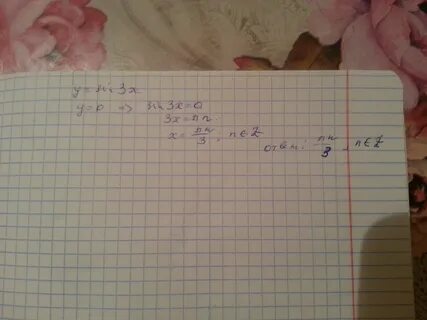 y = sin 3x
y = 0 => sin 3x = 0
3x = πn
x = πn/3, n ∈ Z
ответ: πn/3, n ∈ Z